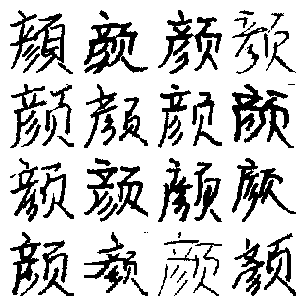 颜颜颜颜
颜颜颜颜
颜颜颜颜
颜颜颜颜